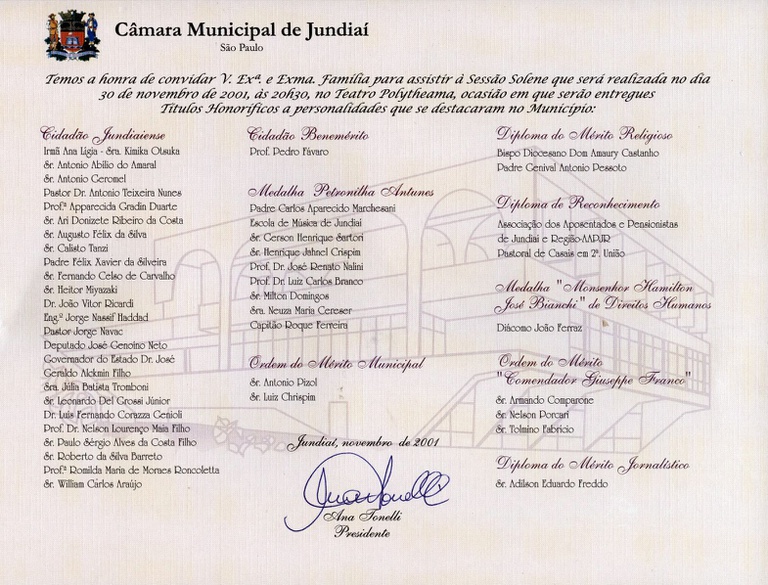 Câmara Municipal de Jundiaí
São Paulo
Temos a honra de convidar V. Exª. e Exma. Família para assistir à Sessão Solene que será realizada no dia
30 de novembro de 2001, às 20h30, no Teatro Polytheama, ocasião em que serão entregues
Títulos Honoríficos a personalidades que se destacaram no Município:
Cidadão Jundiaiense
Irmã Ana Lígia - Sra. Kimika Otsuka
Sr. Antonio Abílio do Amaral
Sr. Antonio Geromel
Pastor Dr. Antonio Teixeira Nunes
Prof.ª Apparecida Gradin Duarte
Sr. Ari Donizete Ribeiro da Costa
Sr. Augusto Félix da Silva
Sr. Calisto Tanzi
Padre Félix Xavier da Silveira
Sr. Fernando Celso de Carvalho
Sr. Heitor Miyazaki
Dr. João Vitor Ricardi
Eng.º Jorge Nassif Haddad
Pastor Jorge Navac
Deputado José Genoino Neto
Governador do Estado Dr. José
Geraldo Alckmin Filho
Sra. Júlia Batista Tromboni
Sr. Leonardo Del Grossi Júnior
Dr. Luis Fernando Corazza Genioli
Prof. Dr. Nelson Lourenço Maia Filho
Sr. Paulo Sérgio Alves da Costa Filho
Sr. Roberto da Silva Barreto
Prof.ª Romilda Maria de Moraes Roncoletta
Sr. William Cárlos Araújo
Cidadão Benemérito
Prof. Pedro Fávaro
Medalha Petronilha Antunes
Padre Carlos Aparecido Marchesani
Escola de Música de Jundiaí
Sr. Gerson Henrique Sartori
Sr. Henrique Jahnel Crispim
Prof. Dr. José Renato Nalini
Prof. Dr. Luiz Carlos Branco
Sr. Milton Domingos
Sra. Neuza Maria Cereser
Capitão Roque Ferreira
Ordem do Mérito Municipal
Sr. Antonio Pizol
Sr. Luiz Chrispim
Diploma do Mérito Religioso
Bispo Diocesano Dom Amaury Castanho
Padre Genival Antonio Pessoto
Diploma de Reconhecimento
Associação dos Aposentados e Pensionistas
de Jundiaí e Região-AAPJR
Pastoral de Casais em 2ª. União
Medalha "Monsenhor Hamilton
José Bianchi" de Direitos Humanos
Diácomo João Ferraz
Ordem do Mérito
"Comendador Giuseppe Franco"
Sr. Armando Comparone
Sr. Nelson Porcari
Sr. Tolmino Fabricio
Diploma do Mérito Jornalístico
Sr. Adilson Eduardo Freddo
Jundiaí, novembro de 2001
Ana Tonelli
Presidente